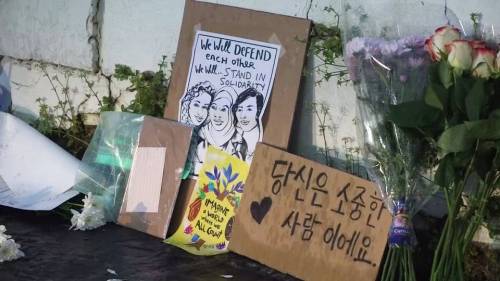 We Will DEFEND
each other
We Will... STAND IN
SOLIDARITY
IMAGINE
A WORLD
WHERE WE
ALL COUNT
당신은 소중한
사람이에요.